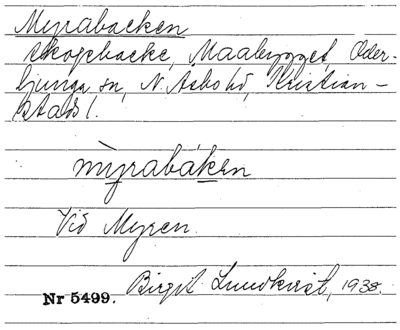 Myrabacken
skogsbacke, Maabygget, Oder-
ljunga sn, N. Åsbo hd, Kristian-
stads l.
mỳrabáken
Vid Myren.
Birgit Lundkvist, 1938.
Nr 5499.